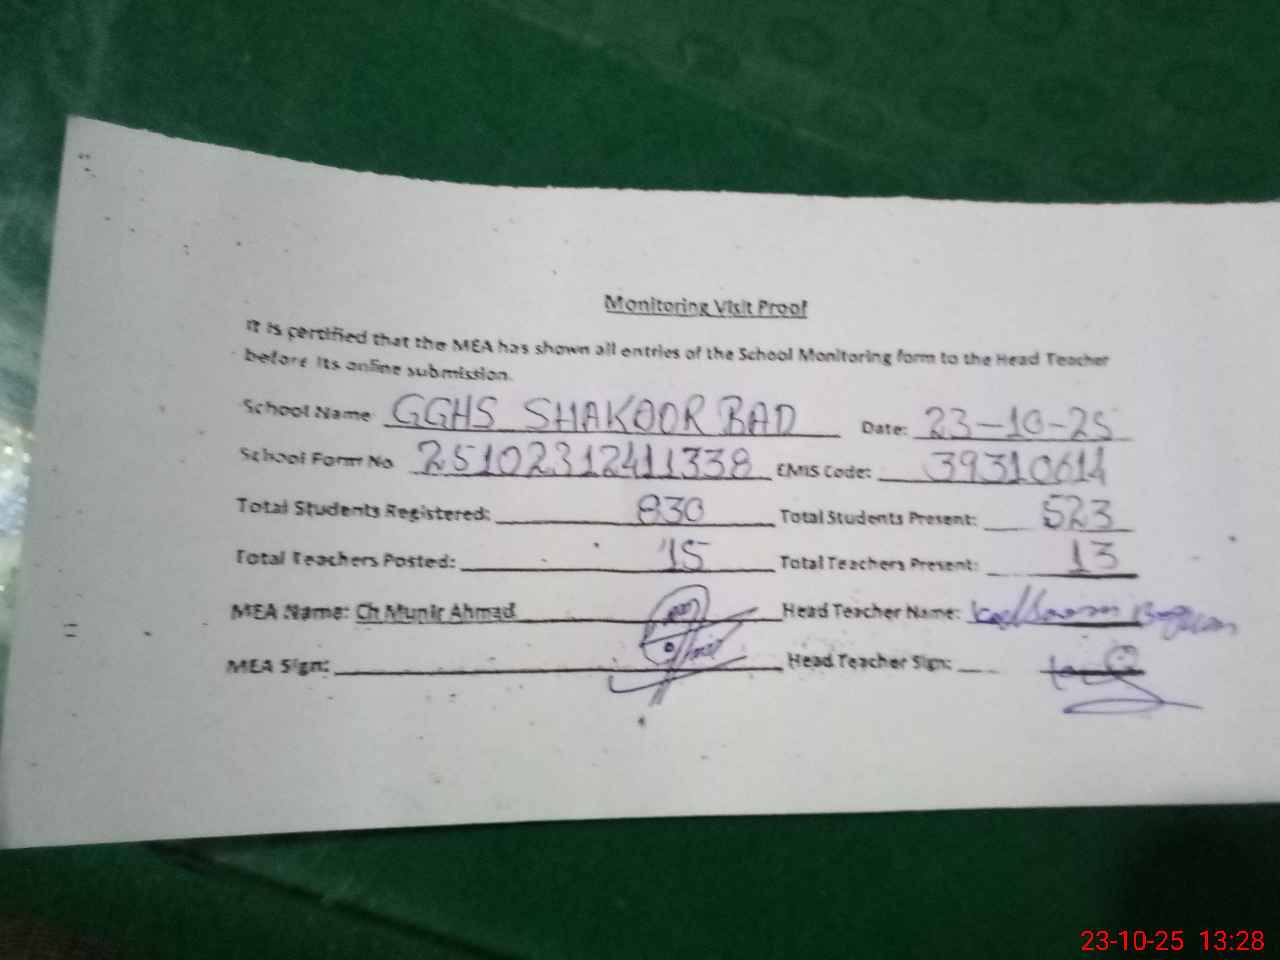 Monitoring Visit Proof
It is certified that the MEA has shown all entries of the School Monitoring form to the Head Teacher
before its online submission.
School Name GGHS SHAKOOR BAD Date: 23-10-25
School Form No 25102312411338 EMIS Code: 39310614
Total Students Registered: 830 Total Students Present: 523
Total Teachers Posted: 15 Total Teachers Present: 13
MEA Name: Ch Munir Ahmad Head Teacher Name:
MEA Sign: Head Teacher Sign:
23-10-25 13:28